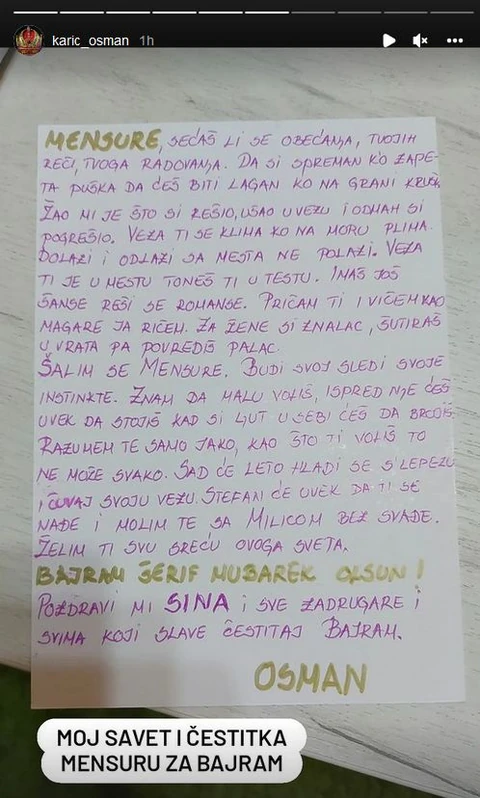 karic_osman 1h
MENSURE, SEĆAŠ LI SE OBEĆANJA, TVOJIH
REČI, TVOGA RADOVANJA. DA SI SPREMAN KO ZAPE-
TA PUŠKA DA ĆEŠ BITI LAGAN KO NA GRANI KRUŠKA.
ŽAO MI JE ŠTO SI REŠIO, UŠAO U VEZU I ODMAH SI
POGREŠIO. VEZA TI SE KLIMA KO NA MORU PLIMA.
DOLAZI I ODLAZI SA MESTA NE POLAZI. VEZA
TI JE U MESTU TONEŠ TI U TESTU. IMAŠ JOŠ
ŠANSE REŠI SE ROMANSE. PRIČAM TI I VIČEM KAO
MAGARE JA RIČEM. ZA ŽENE SI ZNALAC, ŠUTIRAŠ
U VRATA PA POVREDIŠ PALAC.
ŠALIM SE MENSURE. BUDI SVOJ SLEDI SVOJE
INSTINKTE. ZNAM DA MALU VOLIŠ, ISPRED NJE ĆEŠ
UVEK DA STOJIŠ KAD SI LJUT U SEBI ĆEŠ DA BROJIŠ.
RAZUMEM TE SAMO JAKO, KAO ŠTO TI VOLIŠ TO
NE MOŽE SVAKO. SAD ĆE LETO HLADI SE S LEPEZU
I ČUVAJ SVOJU VEZU. STEFAN ĆE UVEK DA TI SE
NAĐE I MOLIM TE SA MILICOM BEZ SVAĐE.
ŽELIM TI SVU SREĆU OVOGA SVETA.
BAJRAM ŠERIF MUBAREK OLSUN!
POZDRAVI MI SINA I SVE ZADRUGARE I
SVIMA KOJI SLAVE ČESTITAJ BAJRAM.
OSMAN
MOJ SAVET I ČESTITKA
MENSURU ZA BAJRAM